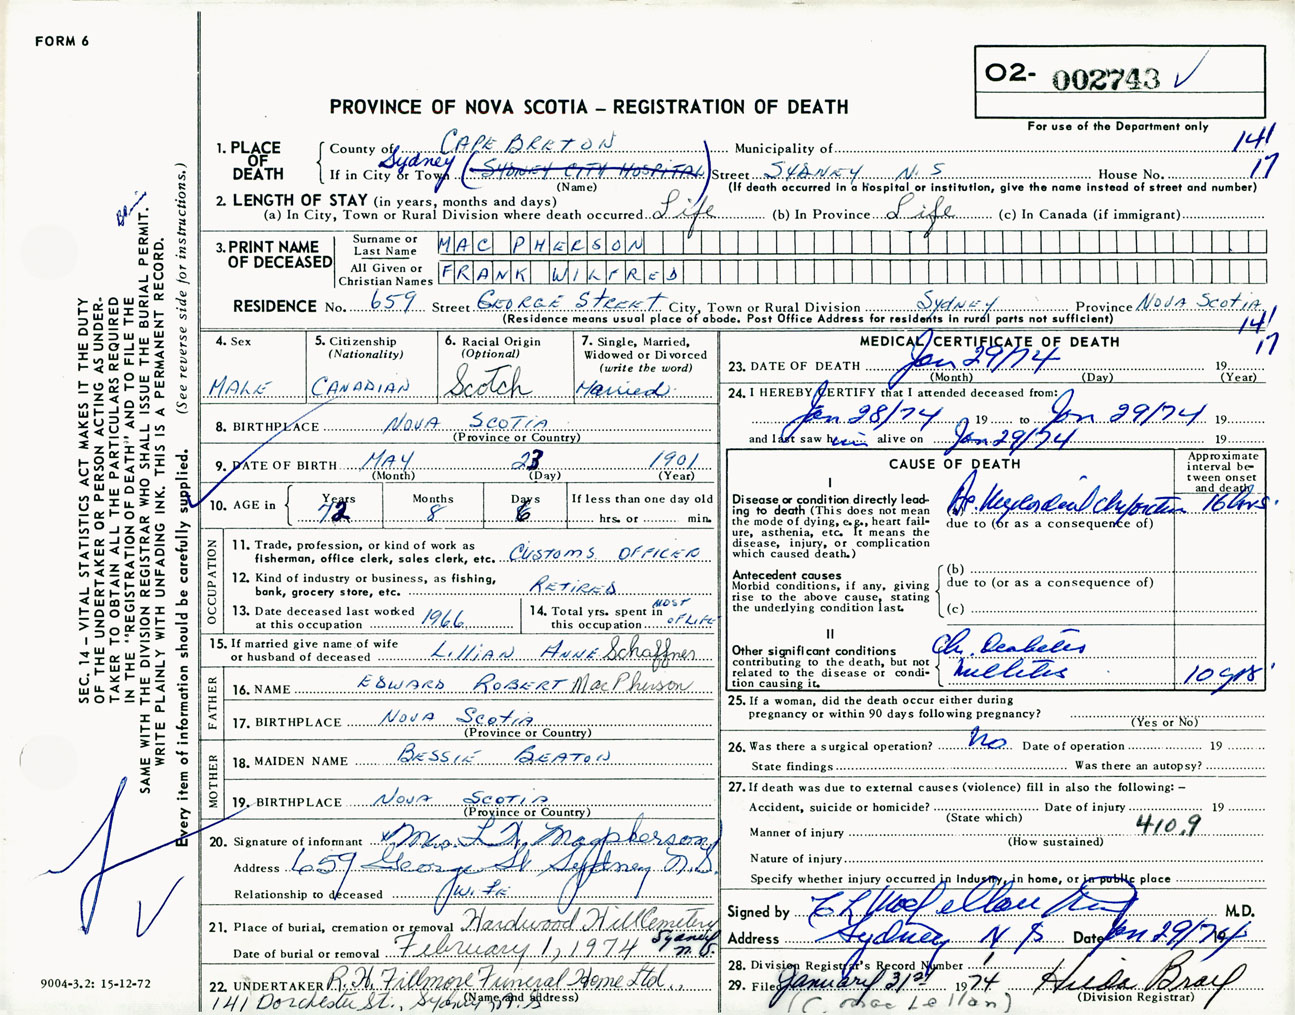 FORM 6
O2- 002743 ✓
PROVINCE OF NOVA SCOTIA – REGISTRATION OF DEATH
For use of the Department only
141
17
1. PLACE OF DEATH
County of CAPE BRETON Municipality of
If in City or Town Sydney (SYDNEY CITY HOSPITAL) Street SYDNEY N. S House No.
(Name) (If death occurred in a hospital or institution, give the name instead of street and number)
2. LENGTH OF STAY (in years, months and days)
(a) In City, Town or Rural Division where death occurred Life (b) In Province Life (c) In Canada (if immigrant)
3. PRINT NAME OF DECEASED
Surname or Last Name MAC PHERSON
All Given or Christian Names FRANK WILFRED
RESIDENCE No. 659 Street GEORGE STREET City, Town or Rural Division SYDNEY Province NOVA SCOTIA
(Residence means usual place of abode. Post Office Address for residents in rural parts not sufficient)
141
17
4. Sex
MALE
5. Citizenship
(Nationality)
CANADIAN
6. Racial Origin
(Optional)
Scotch
7. Single, Married,
Widowed or Divorced
(write the word)
Married
8. BIRTHPLACE NOVA SCOTIA
(Province or Country)
9. DATE OF BIRTH MAY 23 1901
(Month) (Day) (Year)
10. AGE in
Years Months Days If less than one day old
72 8 6 hrs. or min.
OCCUPATION
11. Trade, profession, or kind of work as
fisherman, office clerk, sales clerk, etc. CUSTOMS OFFICER
12. Kind of industry or business, as fishing,
bank, grocery store, etc. RETIRED
13. Date deceased last worked
at this occupation 1966
14. Total yrs. spent in
this occupation MOST OF LIFE
15. If married give name of wife
or husband of deceased LILLIAN ANNE Schaffner
FATHER
16. NAME EDWARD ROBERT MacPherson
17. BIRTHPLACE NOVA SCOTIA
(Province or Country)
MOTHER
18. MAIDEN NAME BESSIE BEATON
19. BIRTHPLACE NOVA SCOTIA
(Province or Country)
20. Signature of informant Mrs. F. W. Macpherson
Address 659 George St Sydney N.S.
Relationship to deceased WIFE
21. Place of burial, cremation or removal Hardwood Hill Cemetery
Sydney N.S.
Date of burial or removal February 1, 1974
22. UNDERTAKER R. H. Fillmore Funeral Home Ltd.,
(Name and address)
141 Dorchester St., Sydney, N.S
MEDICAL CERTIFICATE OF DEATH
23. DATE OF DEATH Jan 29/74 19
(Month) (Day) (Year)
24. I HEREBY CERTIFY that I attended deceased from:
Jan 28/74 19 to Jan 29/74 19
and last saw him alive on Jan 29/74 19
CAUSE OF DEATH
Approximate interval between onset and death
I
Disease or condition directly leading to death (This does not mean the mode of dying, e.g., heart failure, asthenia, etc. It means the disease, injury, or complication which caused death.)
Ac. Myocardial Infarction 16 hrs.
due to (or as a consequence of)
Antecedent causes
Morbid conditions, if any, giving rise to the above cause, stating the underlying condition last.
(b)
due to (or as a consequence of)
(c)
II
Other significant conditions
contributing to the death, but not related to the disease or condition causing it.
Ch. Diabetes
Mellitus 10 yrs
25. If a woman, did the death occur either during
pregnancy or within 90 days following pregnancy?
(Yes or No)
26. Was there a surgical operation? No Date of operation 19
State findings Was there an autopsy?
27. If death was due to external causes (violence) fill in also the following: –
Accident, suicide or homicide? Date of injury 19
(State which)
410.9
Manner of injury
(How sustained)
Nature of injury
Specify whether injury occurred in industry, in home, or in public place
Signed by M.D.
Address Sydney N S Date Jan 29/74 19
28. Division Registrar's Record Number
29. Filed January 31st 1974 Hilda Bray
(Division Registrar)
(C. Mac Lellan)
SEC. 14 – VITAL STATISTICS ACT MAKES IT THE DUTY
OF THE UNDERTAKER OR PERSON ACTING AS UNDER-
TAKER TO OBTAIN ALL THE PARTICULARS REQUIRED
IN THE "REGISTRATION OF DEATH" AND TO FILE THE
SAME WITH THE DIVISION REGISTRAR WHO SHALL ISSUE THE BURIAL PERMIT.
WRITE PLAINLY WITH UNFADING INK. THIS IS A PERMANENT RECORD.
Every item of information should be carefully supplied. (See reverse side for instructions.)
9004-3.2: 15-12-72